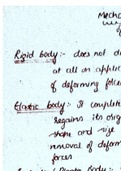 Mecha
Rigid body:- does not d
at all on applic
of deforming force
Elastic body:- It complete
regains its orig
shape and size
removal of deform
forces
body:-